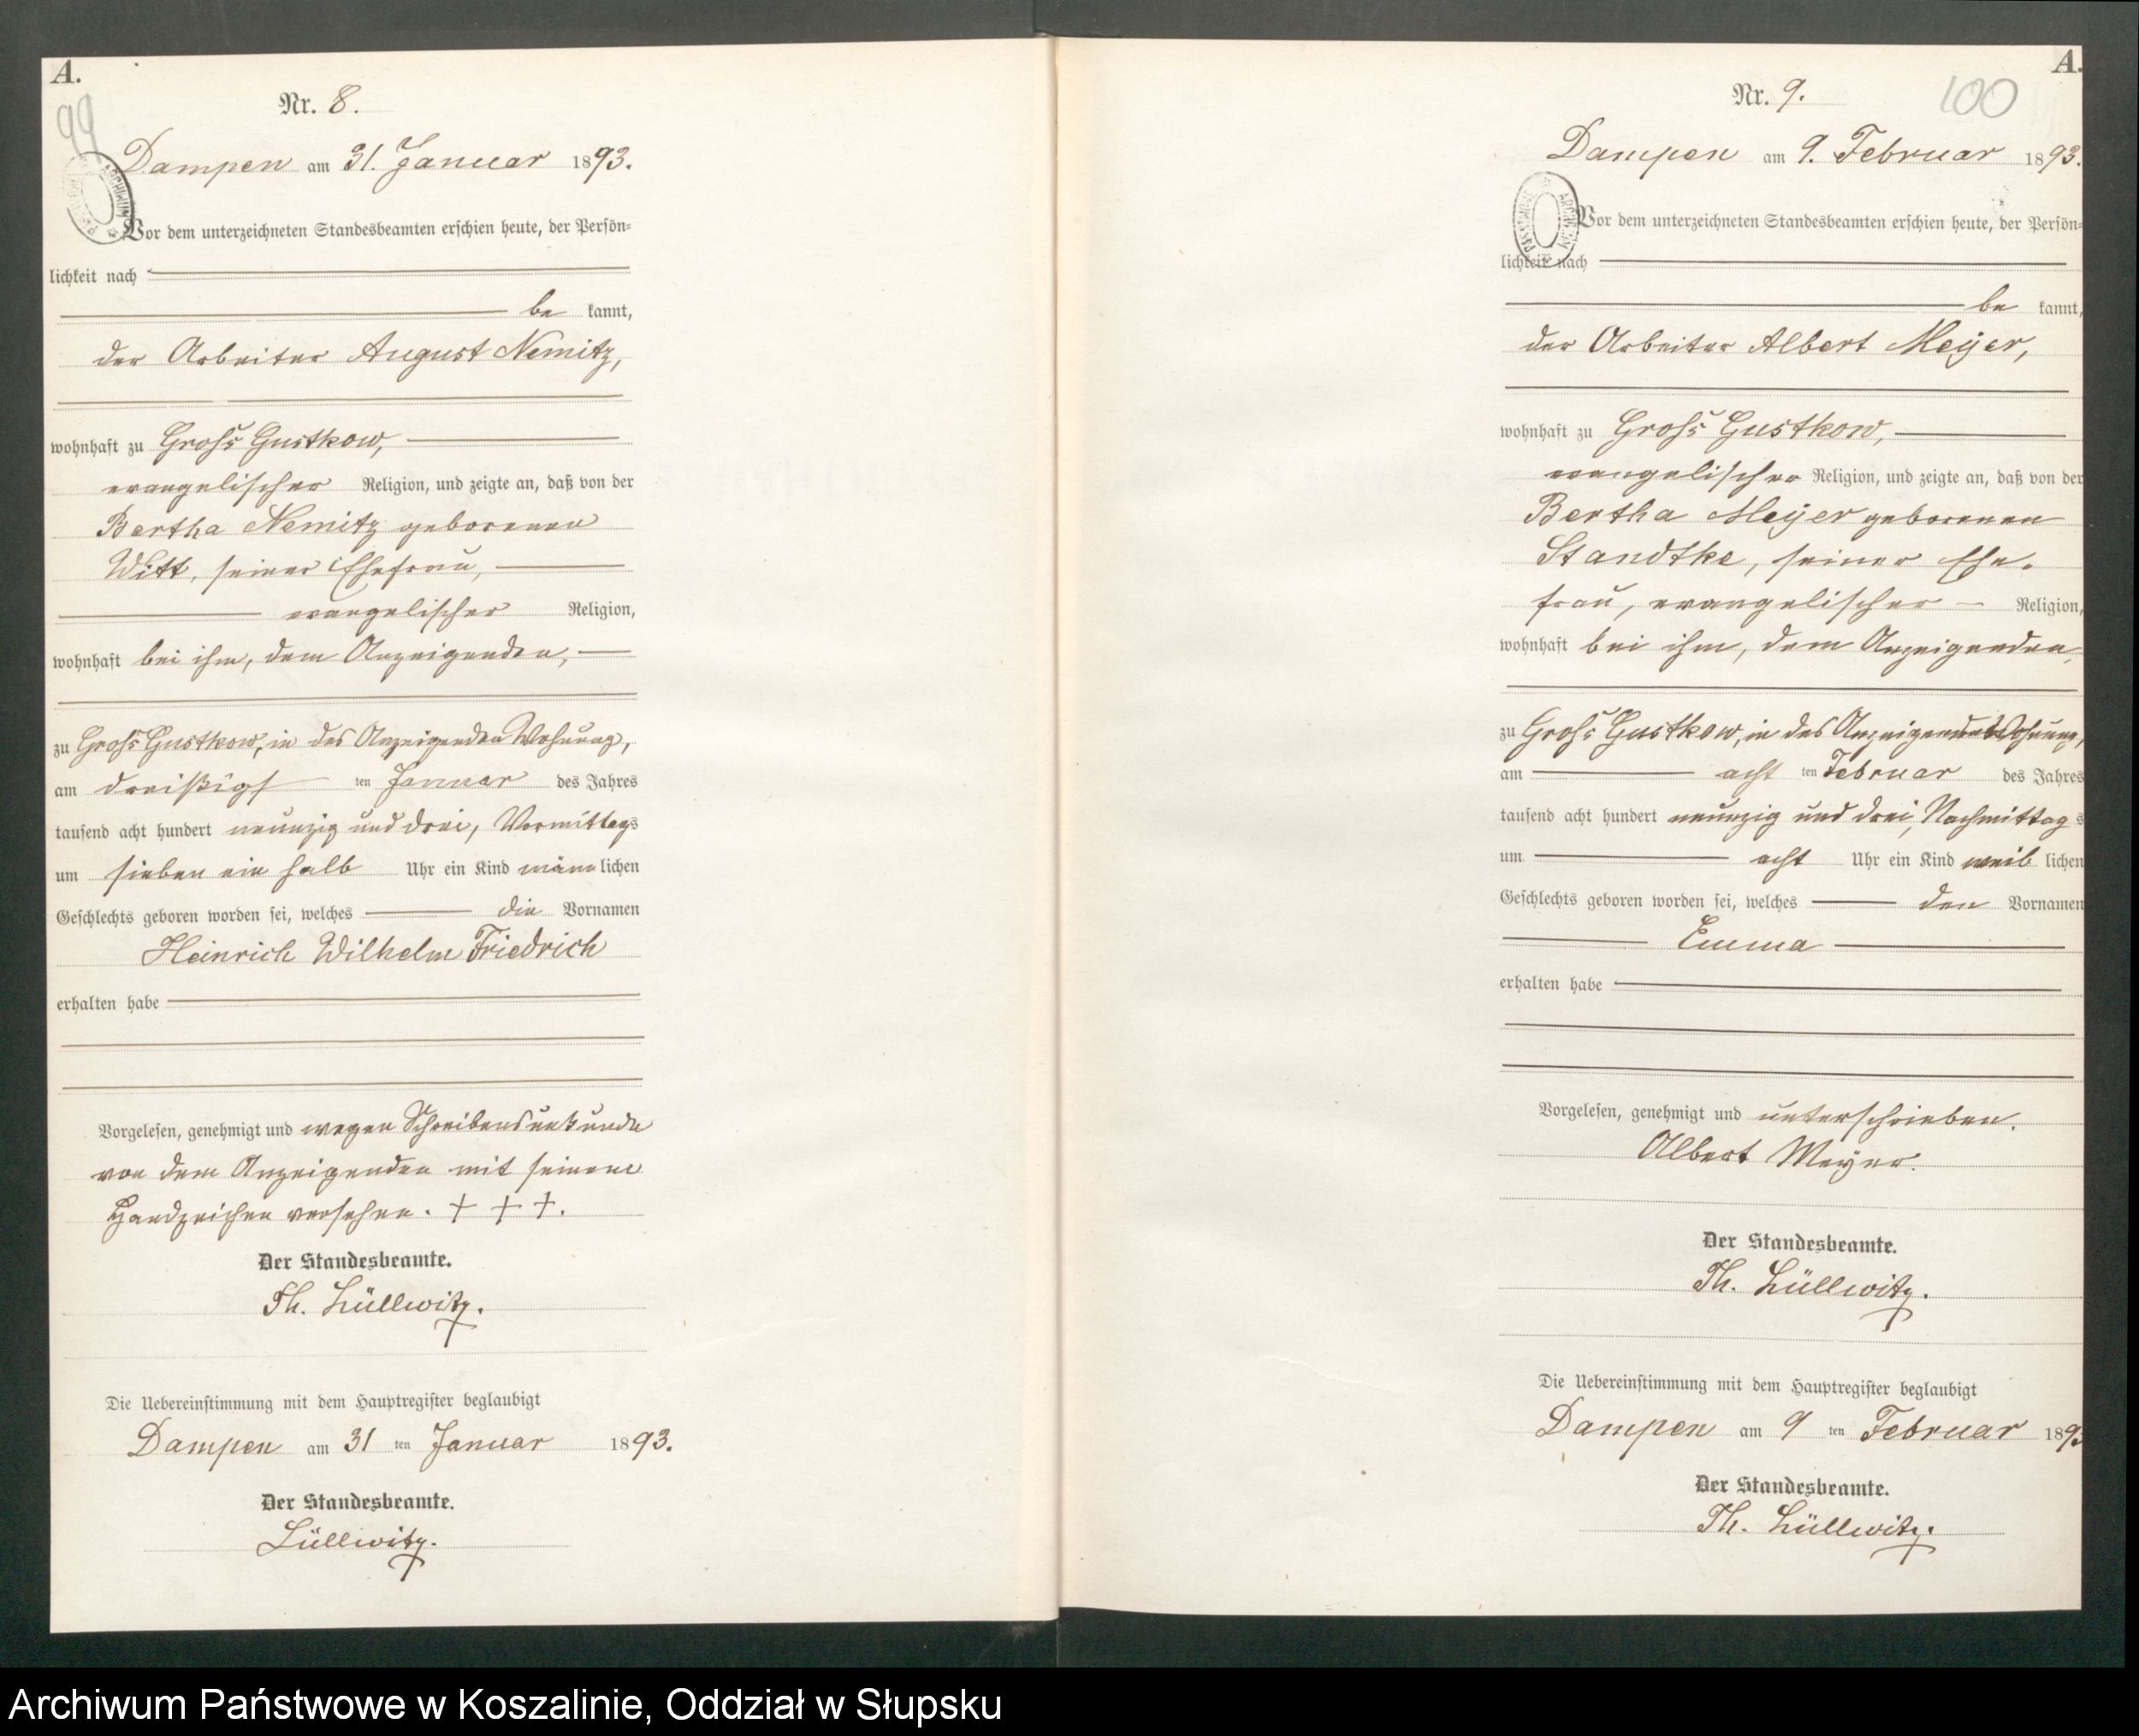 A.
99
Nr. 8.
Dampen am 31. Januar 1893.
Vor dem unterzeichneten Standesbeamten erschien heute, der Persön=
lichkeit nach
be kannt,
der Arbeiter August Nemitz,
wohnhaft zu Groß Gustkow,
evangelischer Religion, und zeigte an, daß von der
Bertha Nemitz geborenen
Witt, seiner Ehefrau,
evangelischer Religion,
wohnhaft bei ihm, dem Anzeigenden,
zu Groß Gustkow, in des Anzeigenden Wohnung,
am dreißigs ten Januar des Jahres
tausend acht hundert neunzig und drei, Vormittags
um sieben ein halb Uhr ein Kind männ lichen
Geschlechts geboren worden sei, welches die Vornamen
Heinrich Wilhelm Friedrich
erhalten habe
Vorgelesen, genehmigt und wegen Schreibensunkunde
von dem Anzeigenden mit seinem
Handzeichen versehen. + + +.
Der Standesbeamte.
Th. Lüllwitz.
Die Uebereinstimmung mit dem Hauptregister beglaubigt
Dampen am 31 ten Januar 1893.
Der Standesbeamte.
Lüllwitz.
A.
100
Nr. 9.
Dampen am 9. Februar 1893.
ARCHIWUM PAŃSTWOWE
Vor dem unterzeichneten Standesbeamten erschien heute, der Persön=
lichkeit nach
be kannt,
der Arbeiter Albert Meyer,
wohnhaft zu Groß Gustkow,
evangelischer Religion, und zeigte an, daß von der
Bertha Meyer geborenen
Standtke, seiner Ehe-
frau, evangelischer Religion,
wohnhaft bei ihm, dem Anzeigenden,
zu Groß Gustkow, in des Anzeigenden Wohnung,
am acht ten Februar des Jahres
tausend acht hundert neunzig und drei, Nachmittag s
um acht Uhr ein Kind weib lichen
Geschlechts geboren worden sei, welches den Vornamen
Emma
erhalten habe
Vorgelesen, genehmigt und unterschrieben.
Albert Meyer.
Der Standesbeamte.
Th. Lüllwitz.
Die Uebereinstimmung mit dem Hauptregister beglaubigt
Dampen am 9 ten Februar 1893
Der Standesbeamte.
Th. Lüllwitz.
Archiwum Państwowe w Koszalinie, Oddział w Słupsku